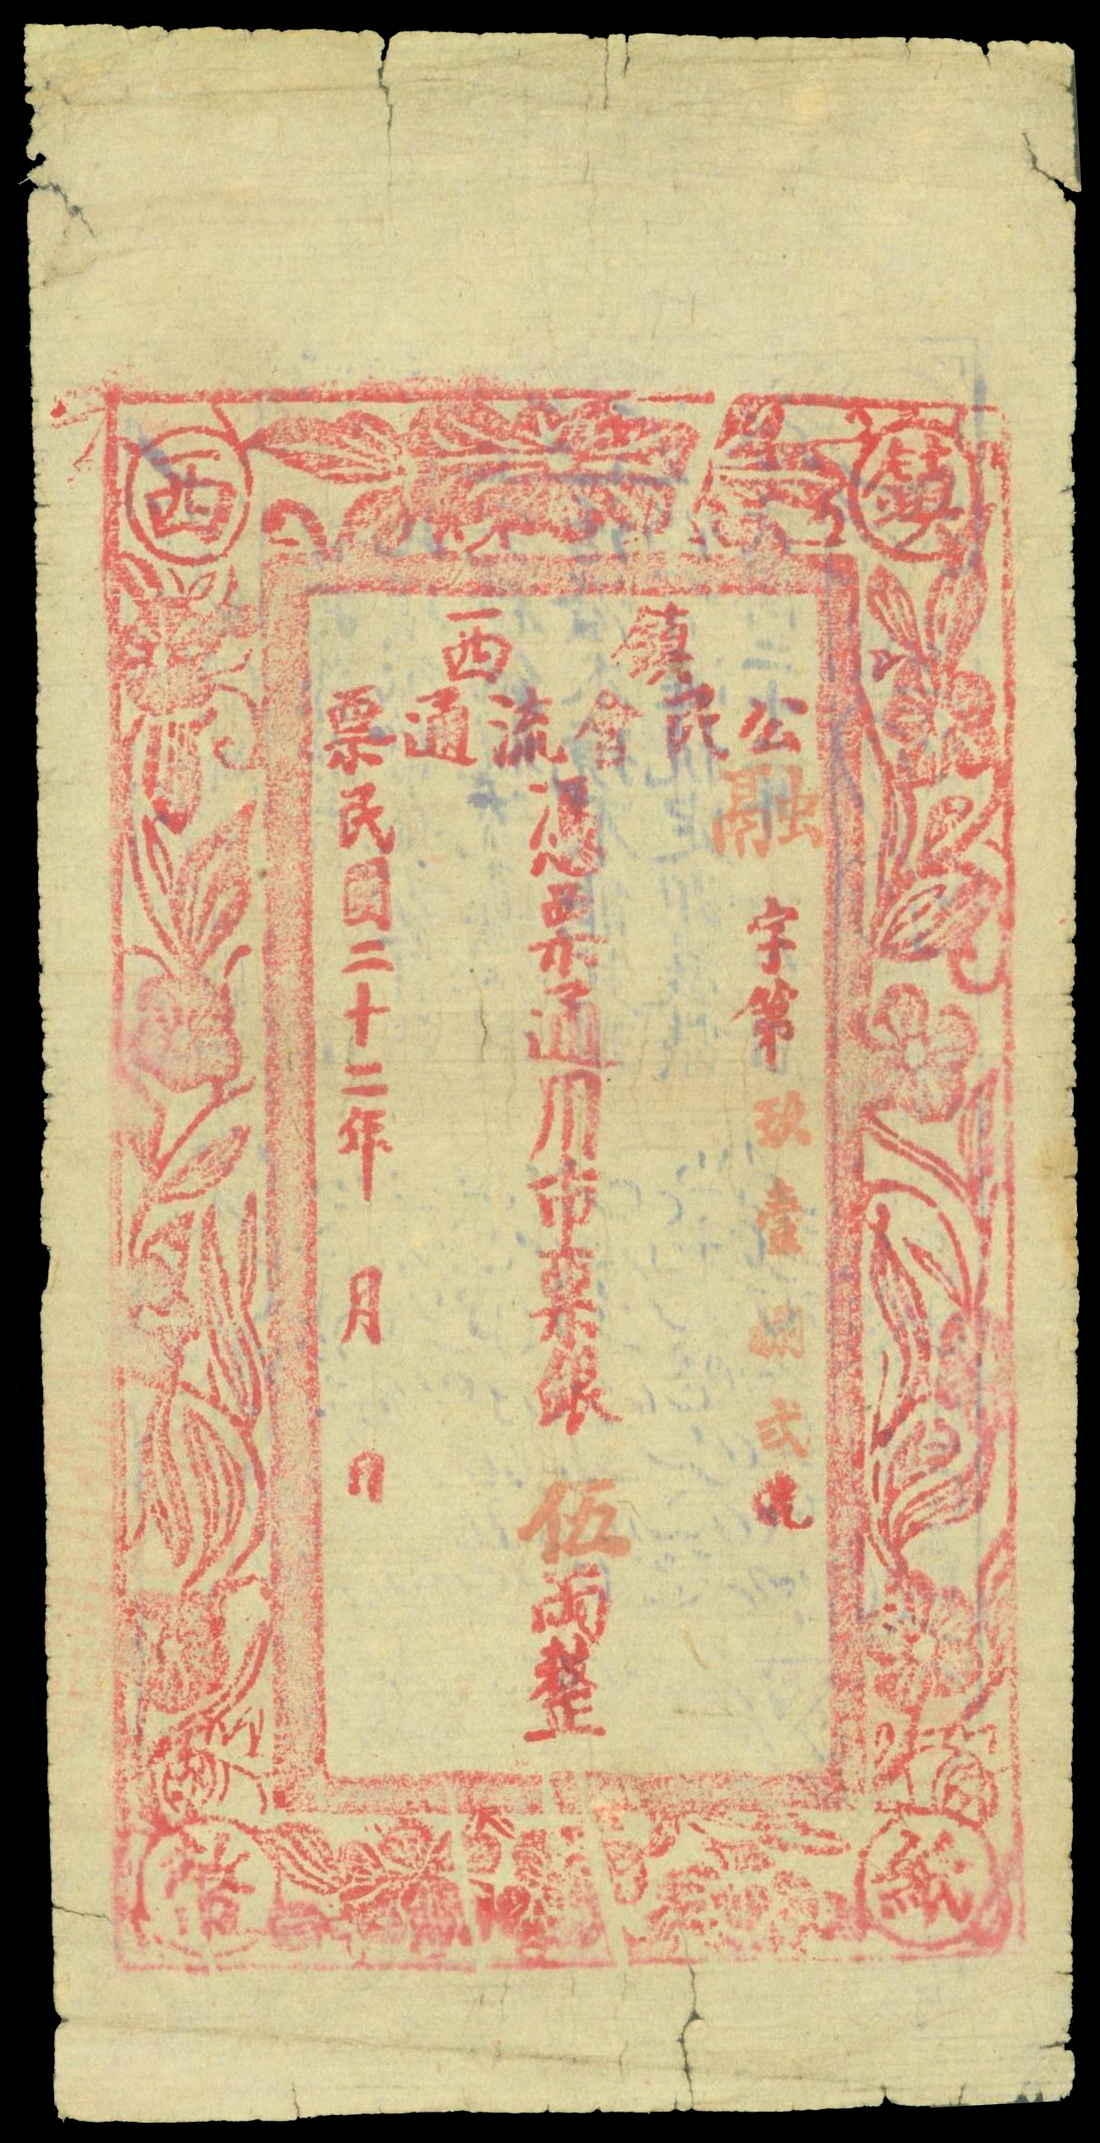 鎮
西
公民會流通票
鎮西
融字第玖壹捌弍號
憑票通用市票銀伍両整
民國二十二年 月 日